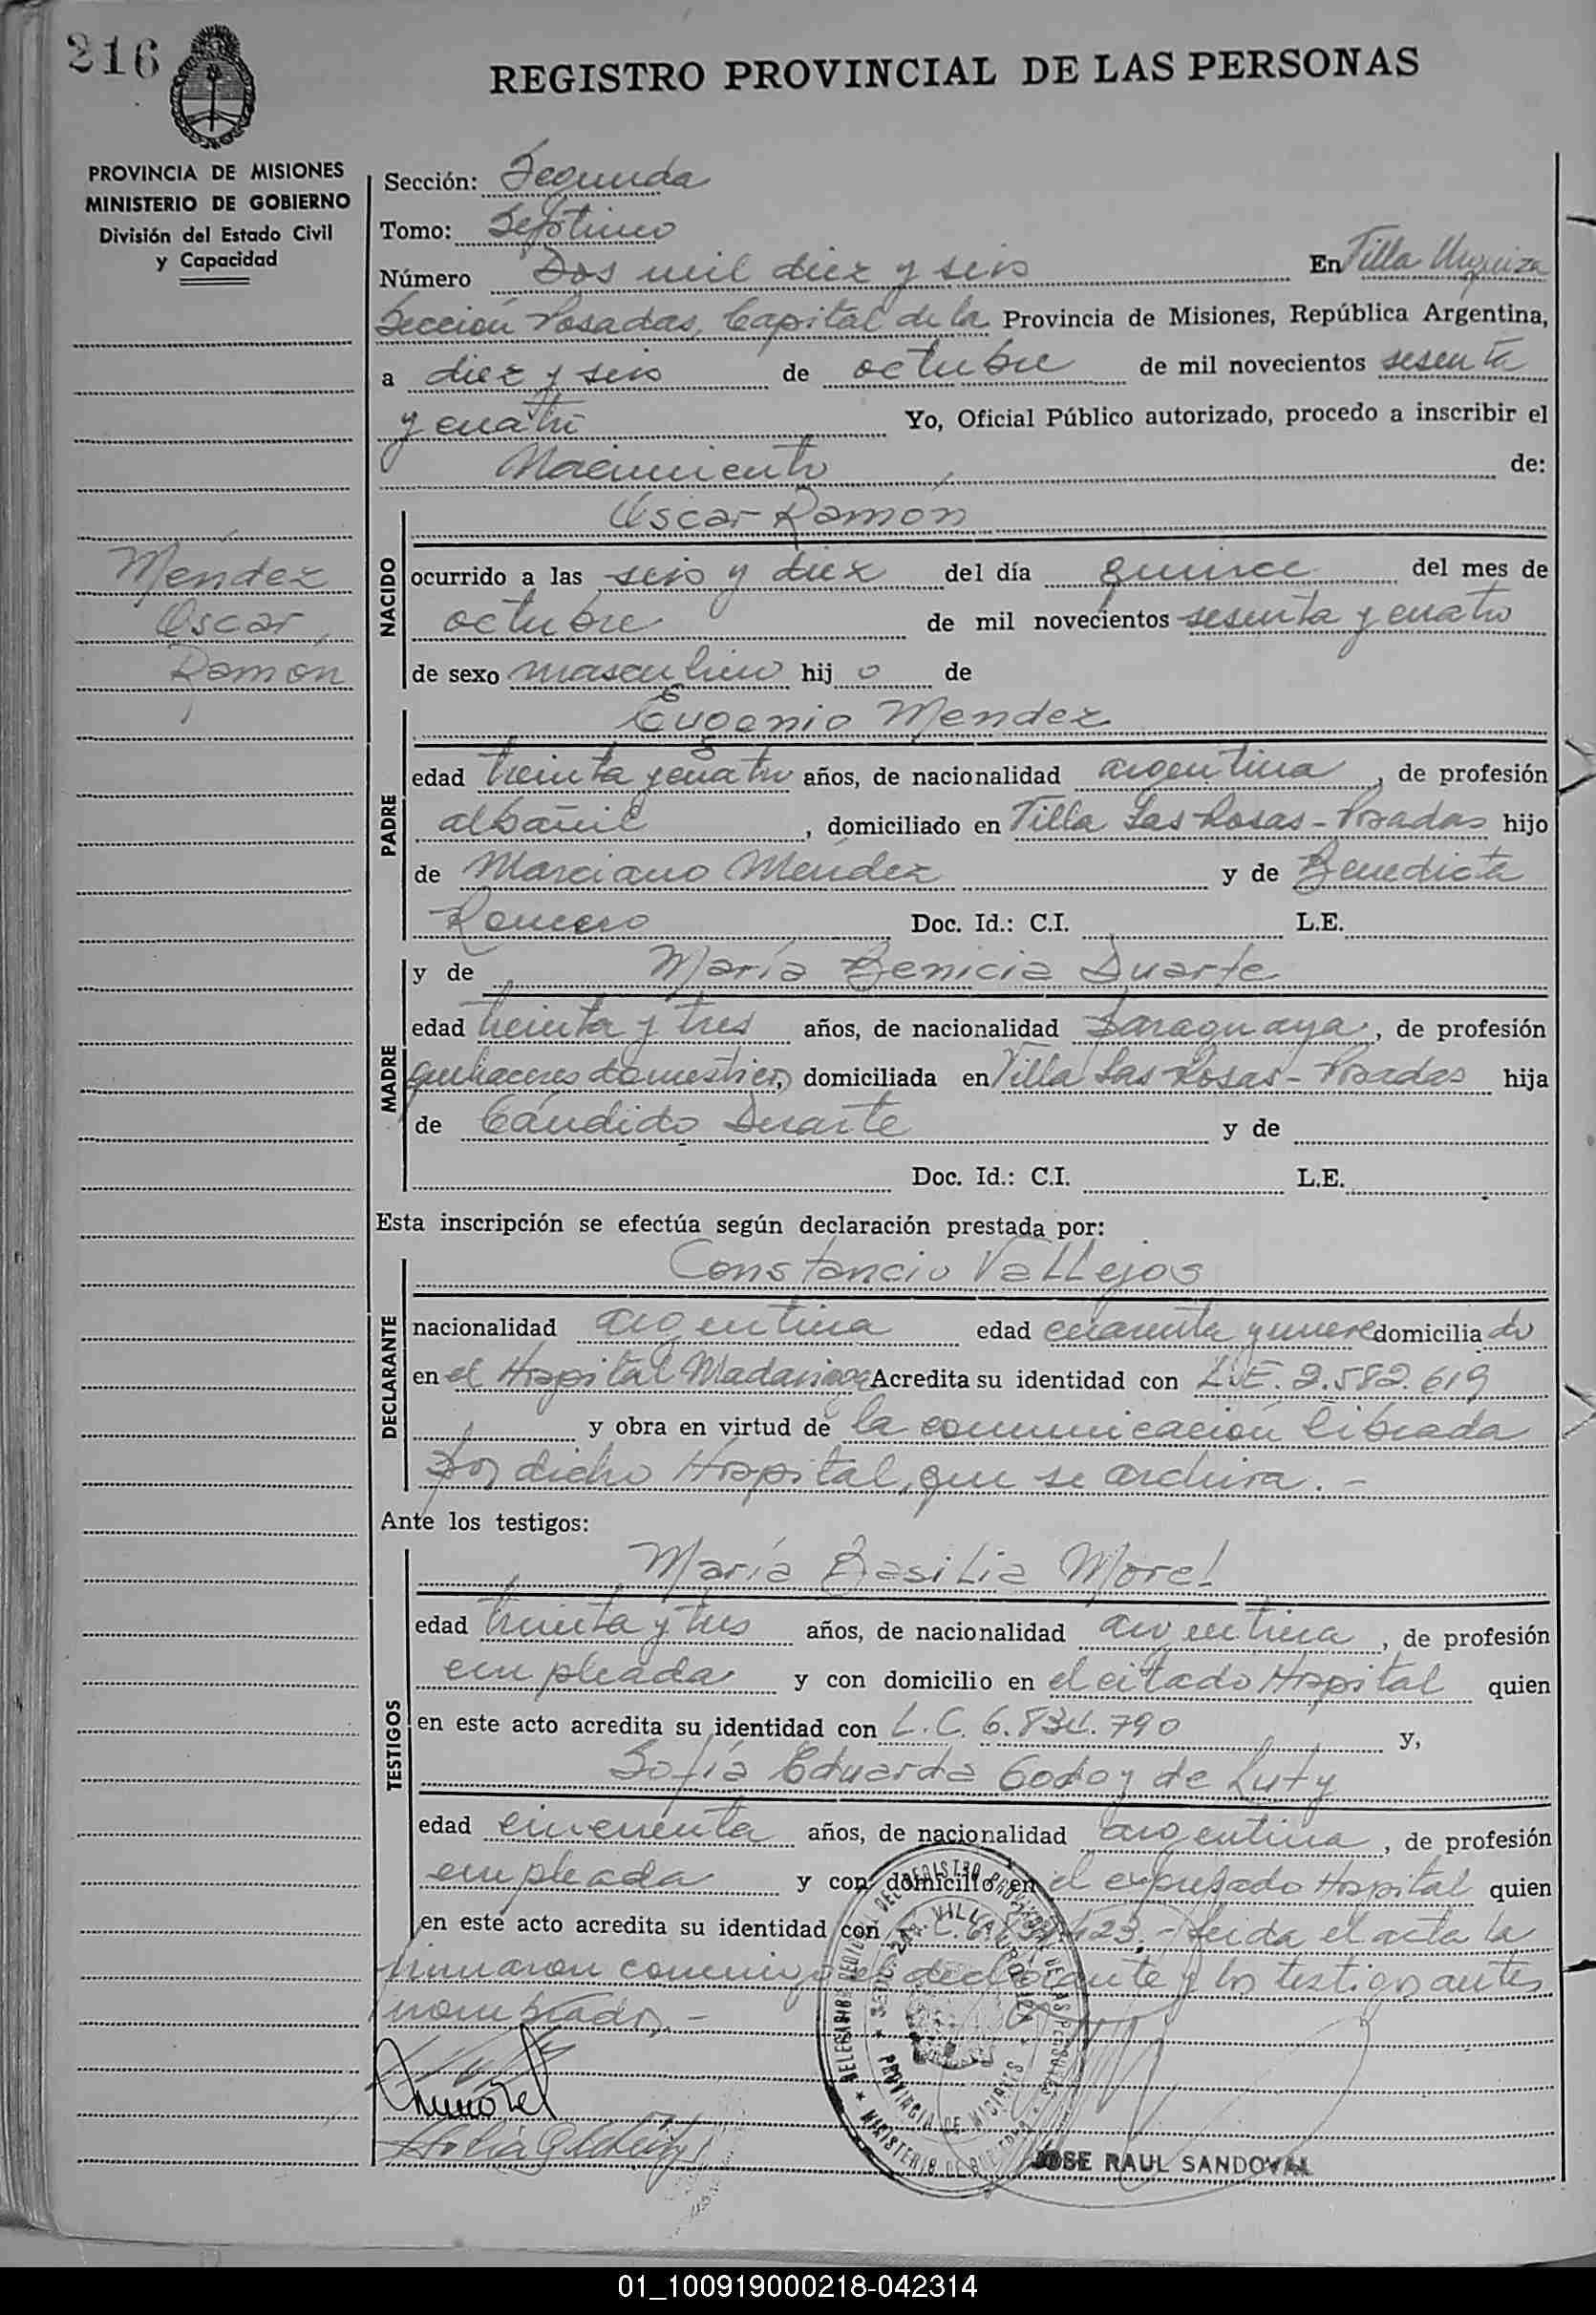 216
REGISTRO PROVINCIAL DE LAS PERSONAS
PROVINCIA DE MISIONES
MINISTERIO DE GOBIERNO
División del Estado Civil
y Capacidad
Méndez
Oscar
Ramón
Sección: Segunda
Tomo: Séptimo
Número Dos mil diez y seis En Villa Urquiza
Sección Posadas, Capital de la Provincia de Misiones, República Argentina,
a diez y seis de octubre de mil novecientos sesenta
y cuatro Yo, Oficial Público autorizado, procedo a inscribir el
Nacimiento de:
NACIDO
Oscar Ramón
ocurrido a las seis y diez del día quince del mes de
octubre de mil novecientos sesenta y cuatro
de sexo masculino hij o de
PADRE
Eugenio Mendez
edad treinta y cuatro años, de nacionalidad argentina, de profesión
albañil, domiciliado en Villa Las Rosas - Posadas hijo
de Marciano Méndez y de Benedicta
Romero Doc. Id.: C.I. L.E.
MADRE
y de María Benicia Duarte
edad treinta y tres años, de nacionalidad paraguaya, de profesión
quehaceres domésticos, domiciliada en Villa Las Rosas - Posadas hija
de Cándido Duarte y de
Doc. Id.: C.I. L.E.
Esta inscripción se efectúa según declaración prestada por:
DECLARANTE
Constancio Vallejos
nacionalidad argentina edad cuarenta y nueve domicilia do
en el Hospital Madariaga Acredita su identidad con L.E. 2.582.619
y obra en virtud de la comunicación librada
por dicho Hospital, que se archiva. -
Ante los testigos:
TESTIGOS
María Basilia Morel
edad treinta y tres años, de nacionalidad argentina, de profesión
empleada y con domicilio en el citado Hospital quien
en este acto acredita su identidad con L.C. 6.834.790 y,
Sofía Eduarda Godoy de Luty
edad cincuenta años, de nacionalidad argentina, de profesión
empleada y con domicilio en el expresado Hospital quien
en este acto acredita su identidad con Leida el acta la
firmaron conmigo el declarante y los testigos antes
nombrados. -
PROVINCIA DE MISIONES
JOSE RAUL SANDOVAL
01_100919000218-042314